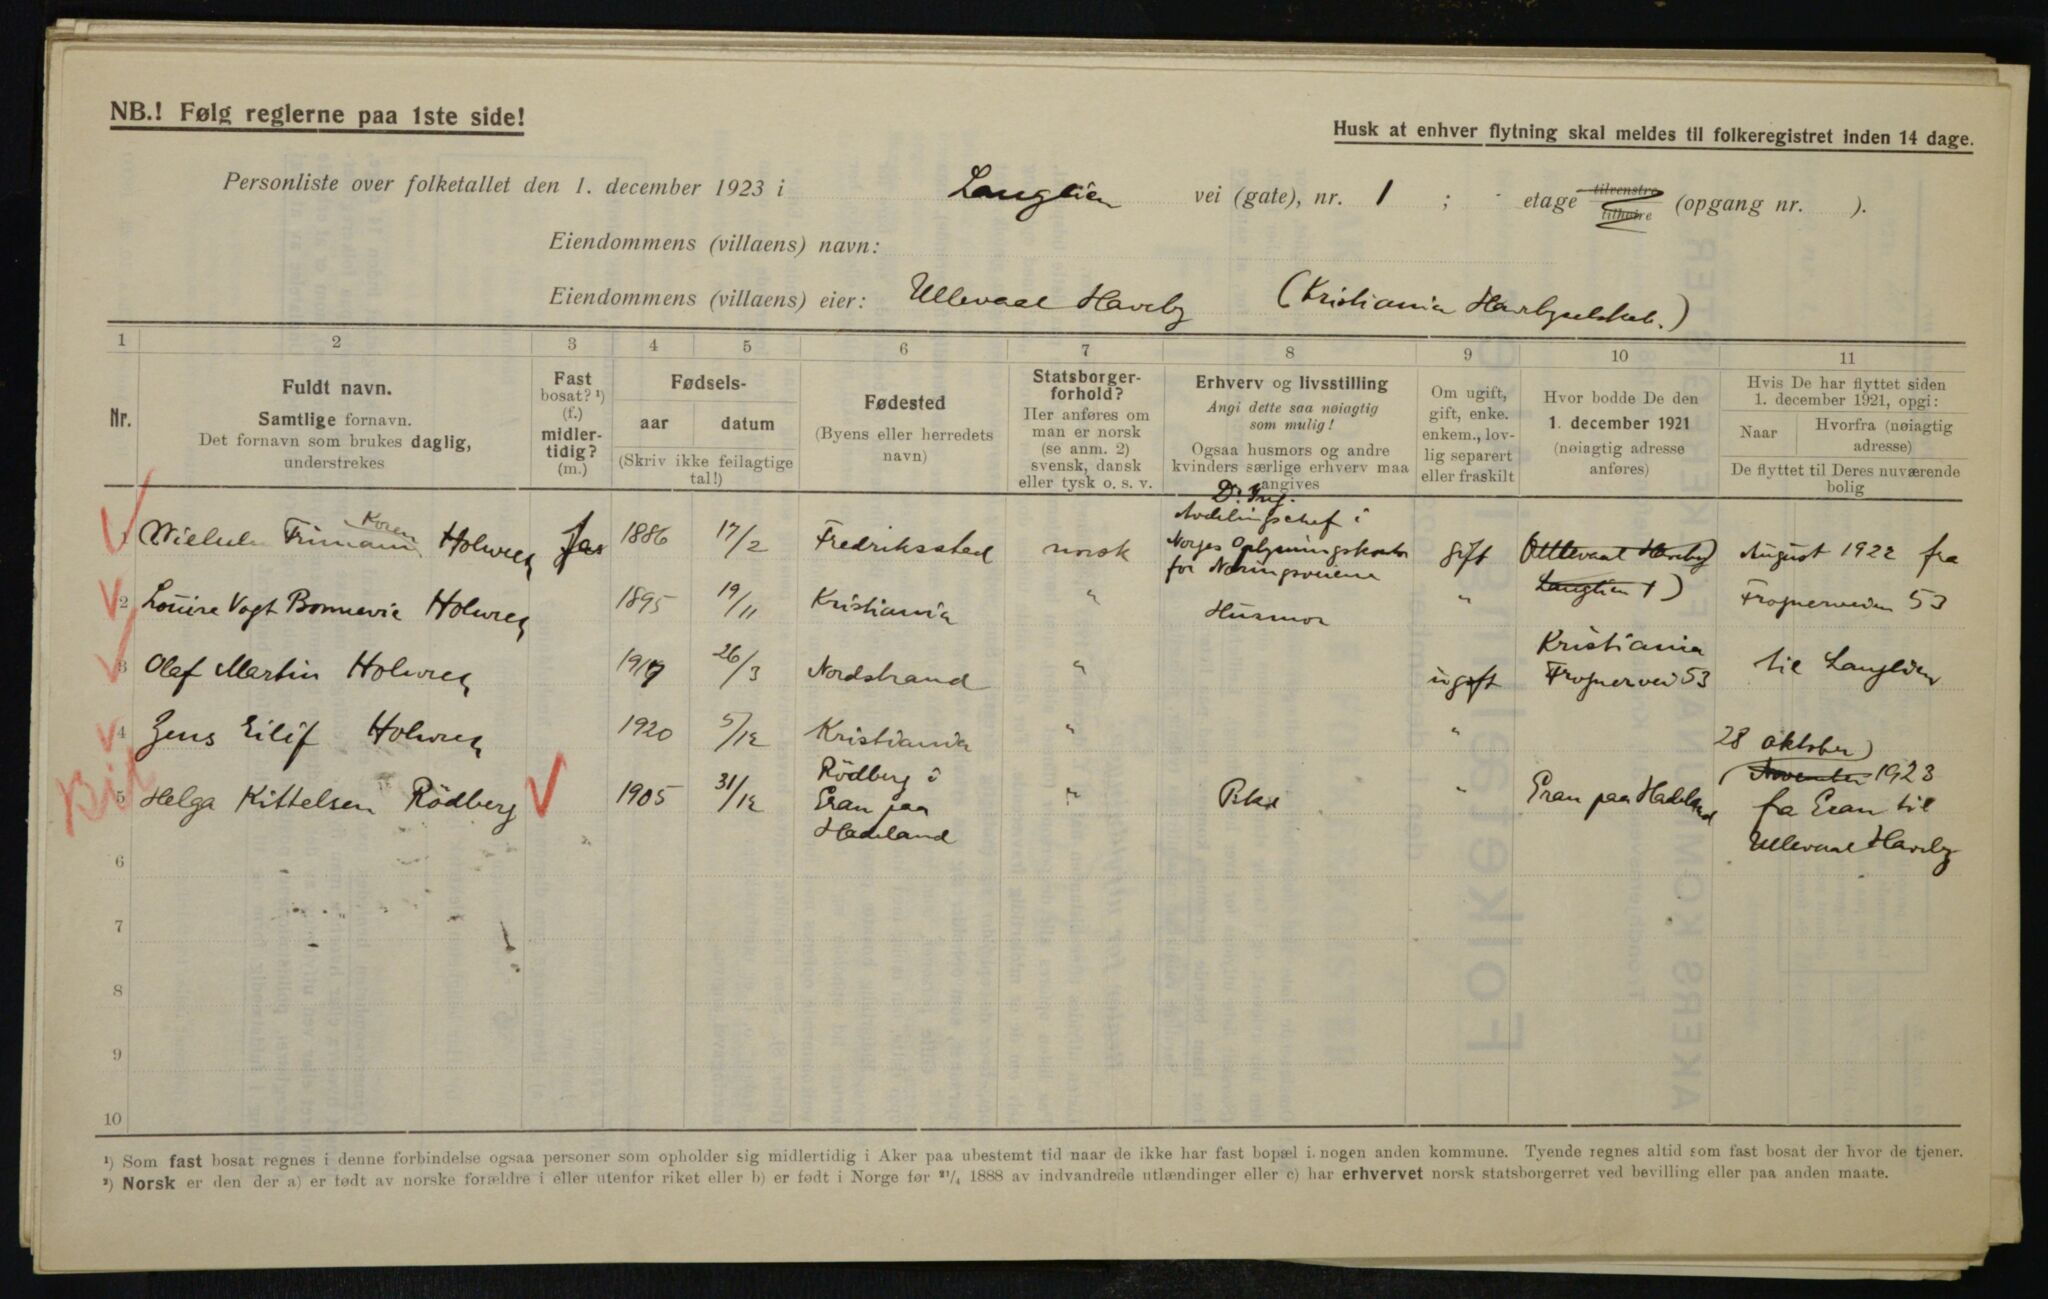 NB.! Følg reglerne paa 1ste side!
Husk at enhver flytning skal meldes til folkeregistret inden 14 dage.
Personliste over folketallet den 1. december 1923 i Langlien vei (gate), nr. 1 ; etage tilvenstre tilhøire (opgang nr. ).
Eiendommens (villaens) navn:
Eiendommens (villaens) eier: Ullevaal Haveby (Kristiania Havebyselskab.)
1 2 3 4 5 6 7 8 9 10 11
Nr.
Fuldt navn.
Samtlige fornavn.
Det fornavn som brukes daglig,
understrekes
Fast
bosat? ¹)
(f.)
midler-
tidig?
(m.)
Fødsels-
aar datum
(Skriv ikke feilagtige
tal!)
Fødested
(Byens eller herredets
navn)
Statsborger-
forhold?
Her anføres om
man er norsk
(se anm. 2)
svensk, dansk
eller tysk o. s. v.
Erhverv og livsstilling
Angi dette saa nøiagtig
som mulig!
Ogsaa husmors og andre
kvinders særlige erhverv maa
angives
Om ugift,
gift, enke.
enkem., lov-
lig separert
eller fraskilt
Hvor bodde De den
1. december 1921
(nøiagtig adresse
anføres)
Hvis De har flyttet siden
1. december 1921, opgi:
Naar Hvorfra (nøiagtig
adresse)
De flyttet til Deres nuværende
bolig
Dr. Ing.
Koren Avdelingschef i
1 Wilhelm Frimann Holwech Ja 1886 17/2 Fredriksstad norsk Norges Oplysningskontor gift (Ullevaal Haveby August 1922 fra
for Næringsveiene
2 Louise Vogt Bonnevie Holwech 1895 19/11 Kristiania " Husmor " Langlien 1) Frognerveien 53
Kristiania
3 Olaf Martin Holwech 1917 26/3 Nordstrand " ugift Frognervei 53 til Langlien
4 Jens Eilif Holwech 1920 5/12 Kristiania " "
28 oktober)
Rödberg i (November 1923
Bil 5 Helga Kittelsen Rödberg 1905 31/12 Gran paa " " Gran paa Hadeland fra Gran til
Hadeland Ullevaal Haveby
6
7
8
9
10
¹) Som fast bosat regnes i denne forbindelse ogsaa personer som opholder sig midlertidig i Aker paa ubestemt tid naar de ikke har fast bopæl i nogen anden kommune. Tyende regnes altid som fast bosat der hvor de tjener.
²) Norsk er den der a) er født av norske forældre i eller utenfor riket eller b) er født i Norge før ²¹/₄ 1888 av indvandrede utlændinger eller c) har erhvervet norsk statsborgerret ved bevilling eller paa anden maate.